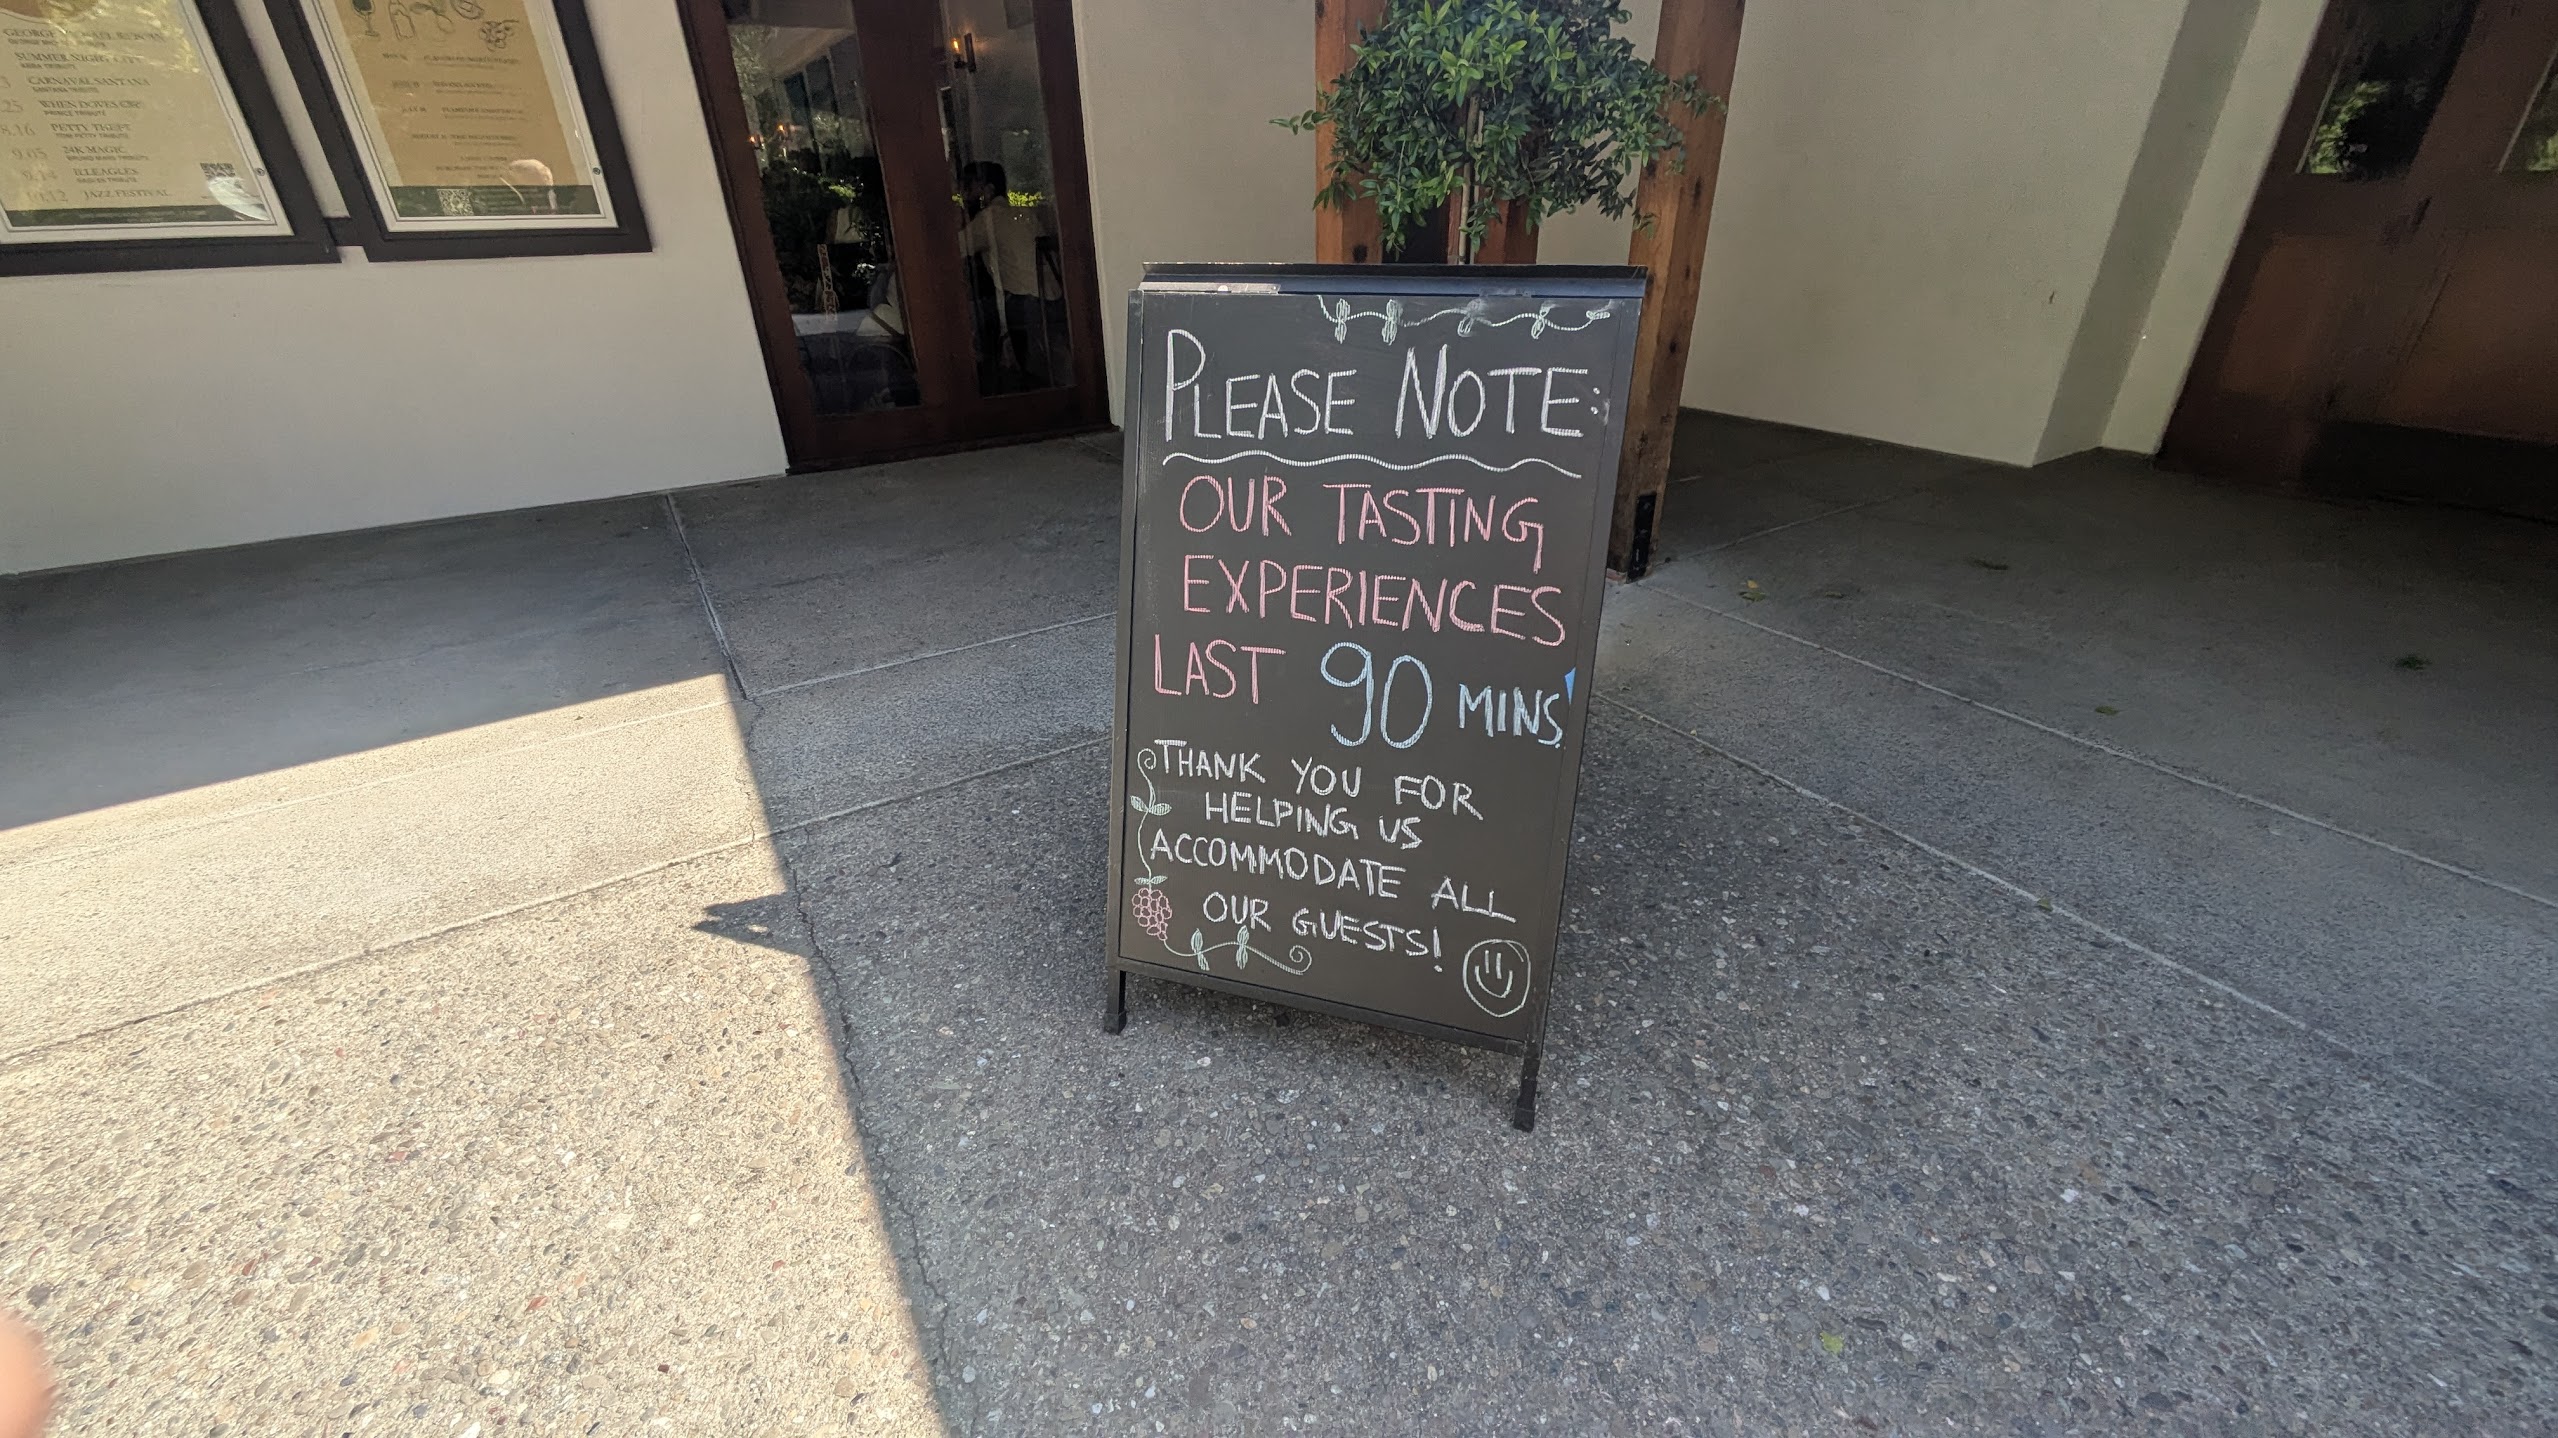 SUMMER NIGHT CITY
ABBA TRIBUTE
CARNAVAL SANTANA
SANTANA TRIBUTE
25 WHEN DOVES CRY
PRINCE TRIBUTE
8.16 PETTY THEFT
TOM PETTY TRIBUTE
9.05 24K MAGIC
BRUNO MARS TRIBUTE
9.14 ILLEAGLES
EAGLES TRIBUTE
10.12 JAZZ FESTIVAL
PLEASE NOTE:
OUR TASTING
EXPERIENCES
LAST 90 MINS!
THANK YOU FOR
HELPING US
ACCOMMODATE ALL
OUR GUESTS!